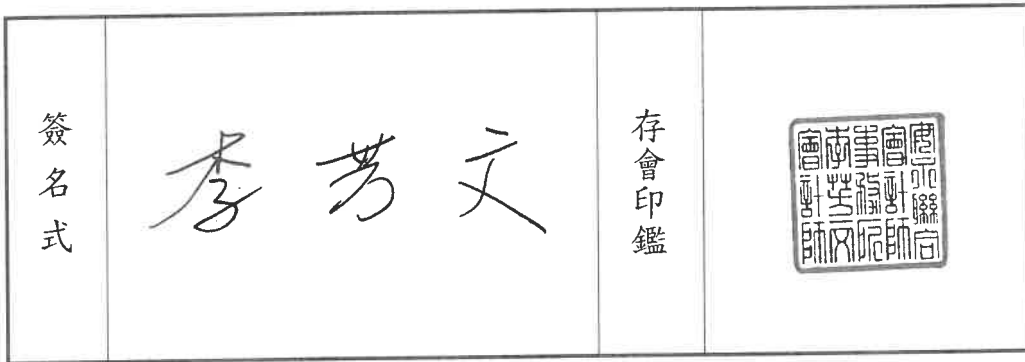 簽名式
李芳文
存會印鑑
安永聯合
會計師
事務所
李芳文
會計師